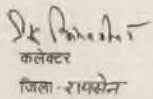 कलेक्टर
जिला - रायसेन